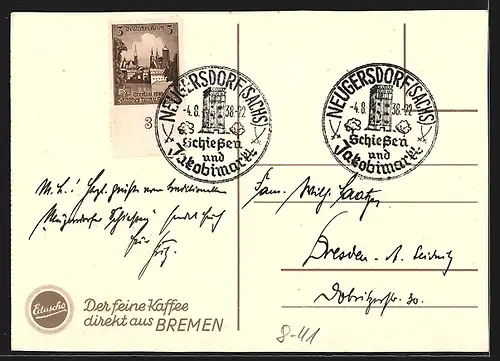 3 Deutsches Reich 3
Breslau 1938
3
NEUGERSDORF (SACHS)
-4.8. 38.-22
Schießen
und
Jakobimarkt
NEUGERSDORF (SACHS)
-4.8. 38.-22
Schießen
und
Jakobimarkt
M. L.! Herzl. Grüße vom traditionellen
"Neugersdorfer Schießen" sendet Euch
Euer
Fritz.
Fam. Wilh.
Dresden - A.
str. 30.
Eduscho
Der feine Kaffee
direkt aus BREMEN
8-41